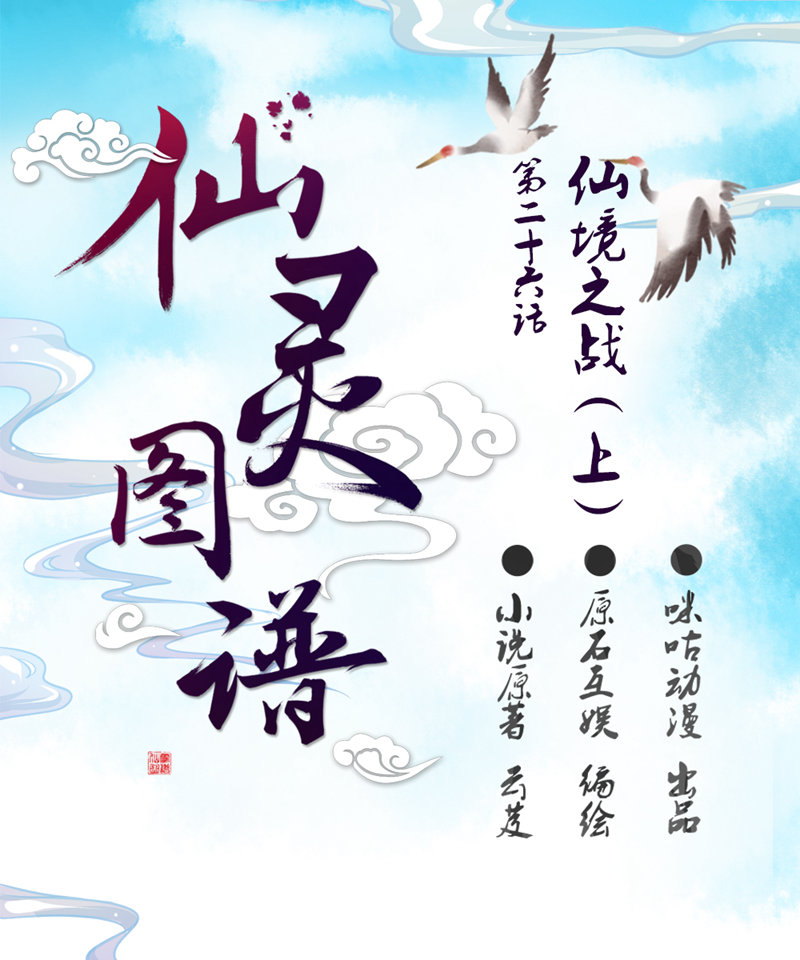 仙灵图谱
仙境之战（上）
第二十六话
咪咕动漫 出品
原石互娱 编绘
小说原著 云芨